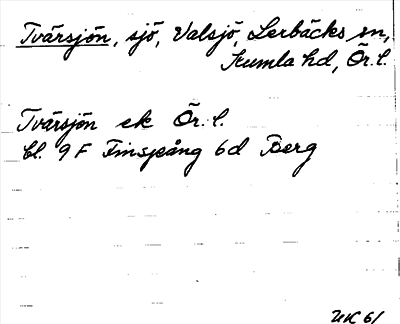 Tvärsjön, sjö, Valsjö, Lerbäcks sn,
Kumla hd, Ör. l.
Tvärsjön ek Ör. l.
Bl. 9 F Finspång 6d Berg
UK 61